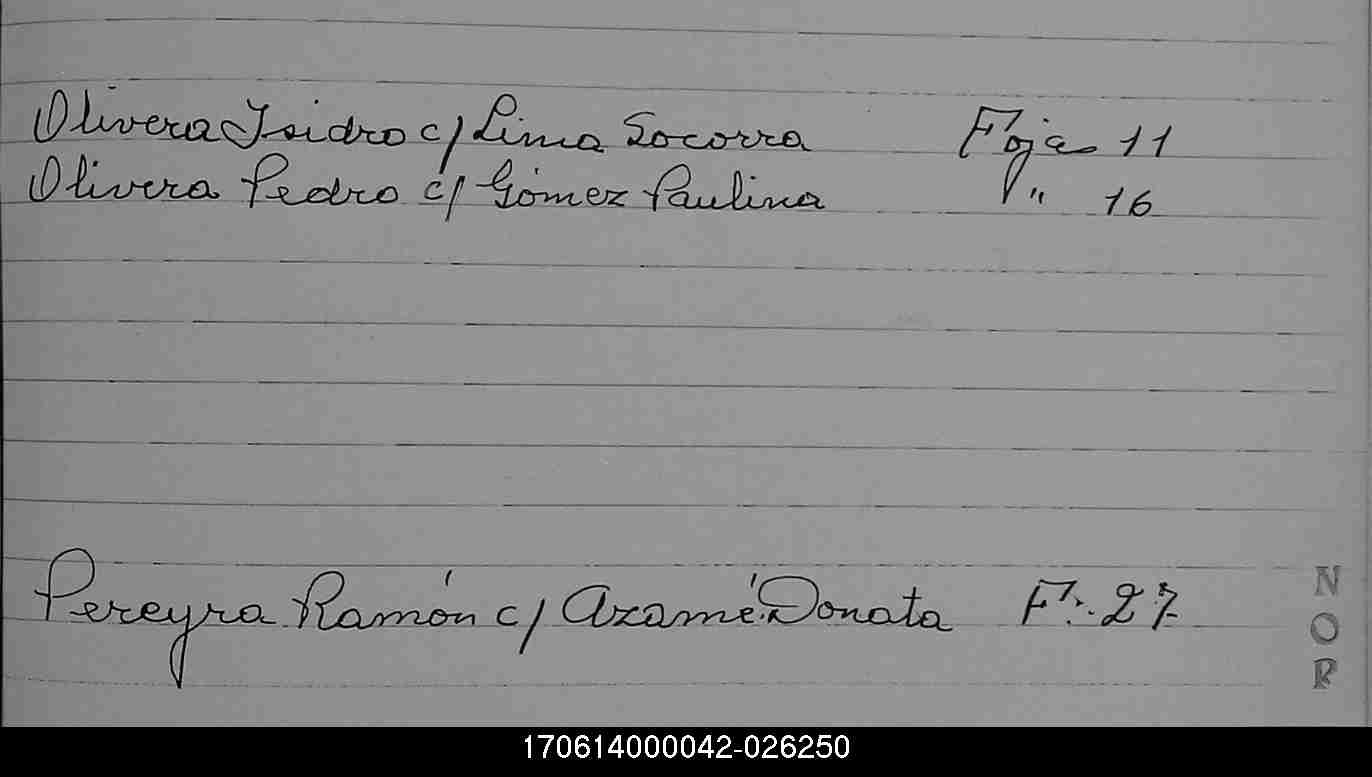 Olivera Isidro c/ Lima Socorra Foja 11
Olivera Pedro c/ Gómez Paulina " 16
Pereyra Ramón c/ Azamé Donata F. 27
N
O
R
170614000042-026250